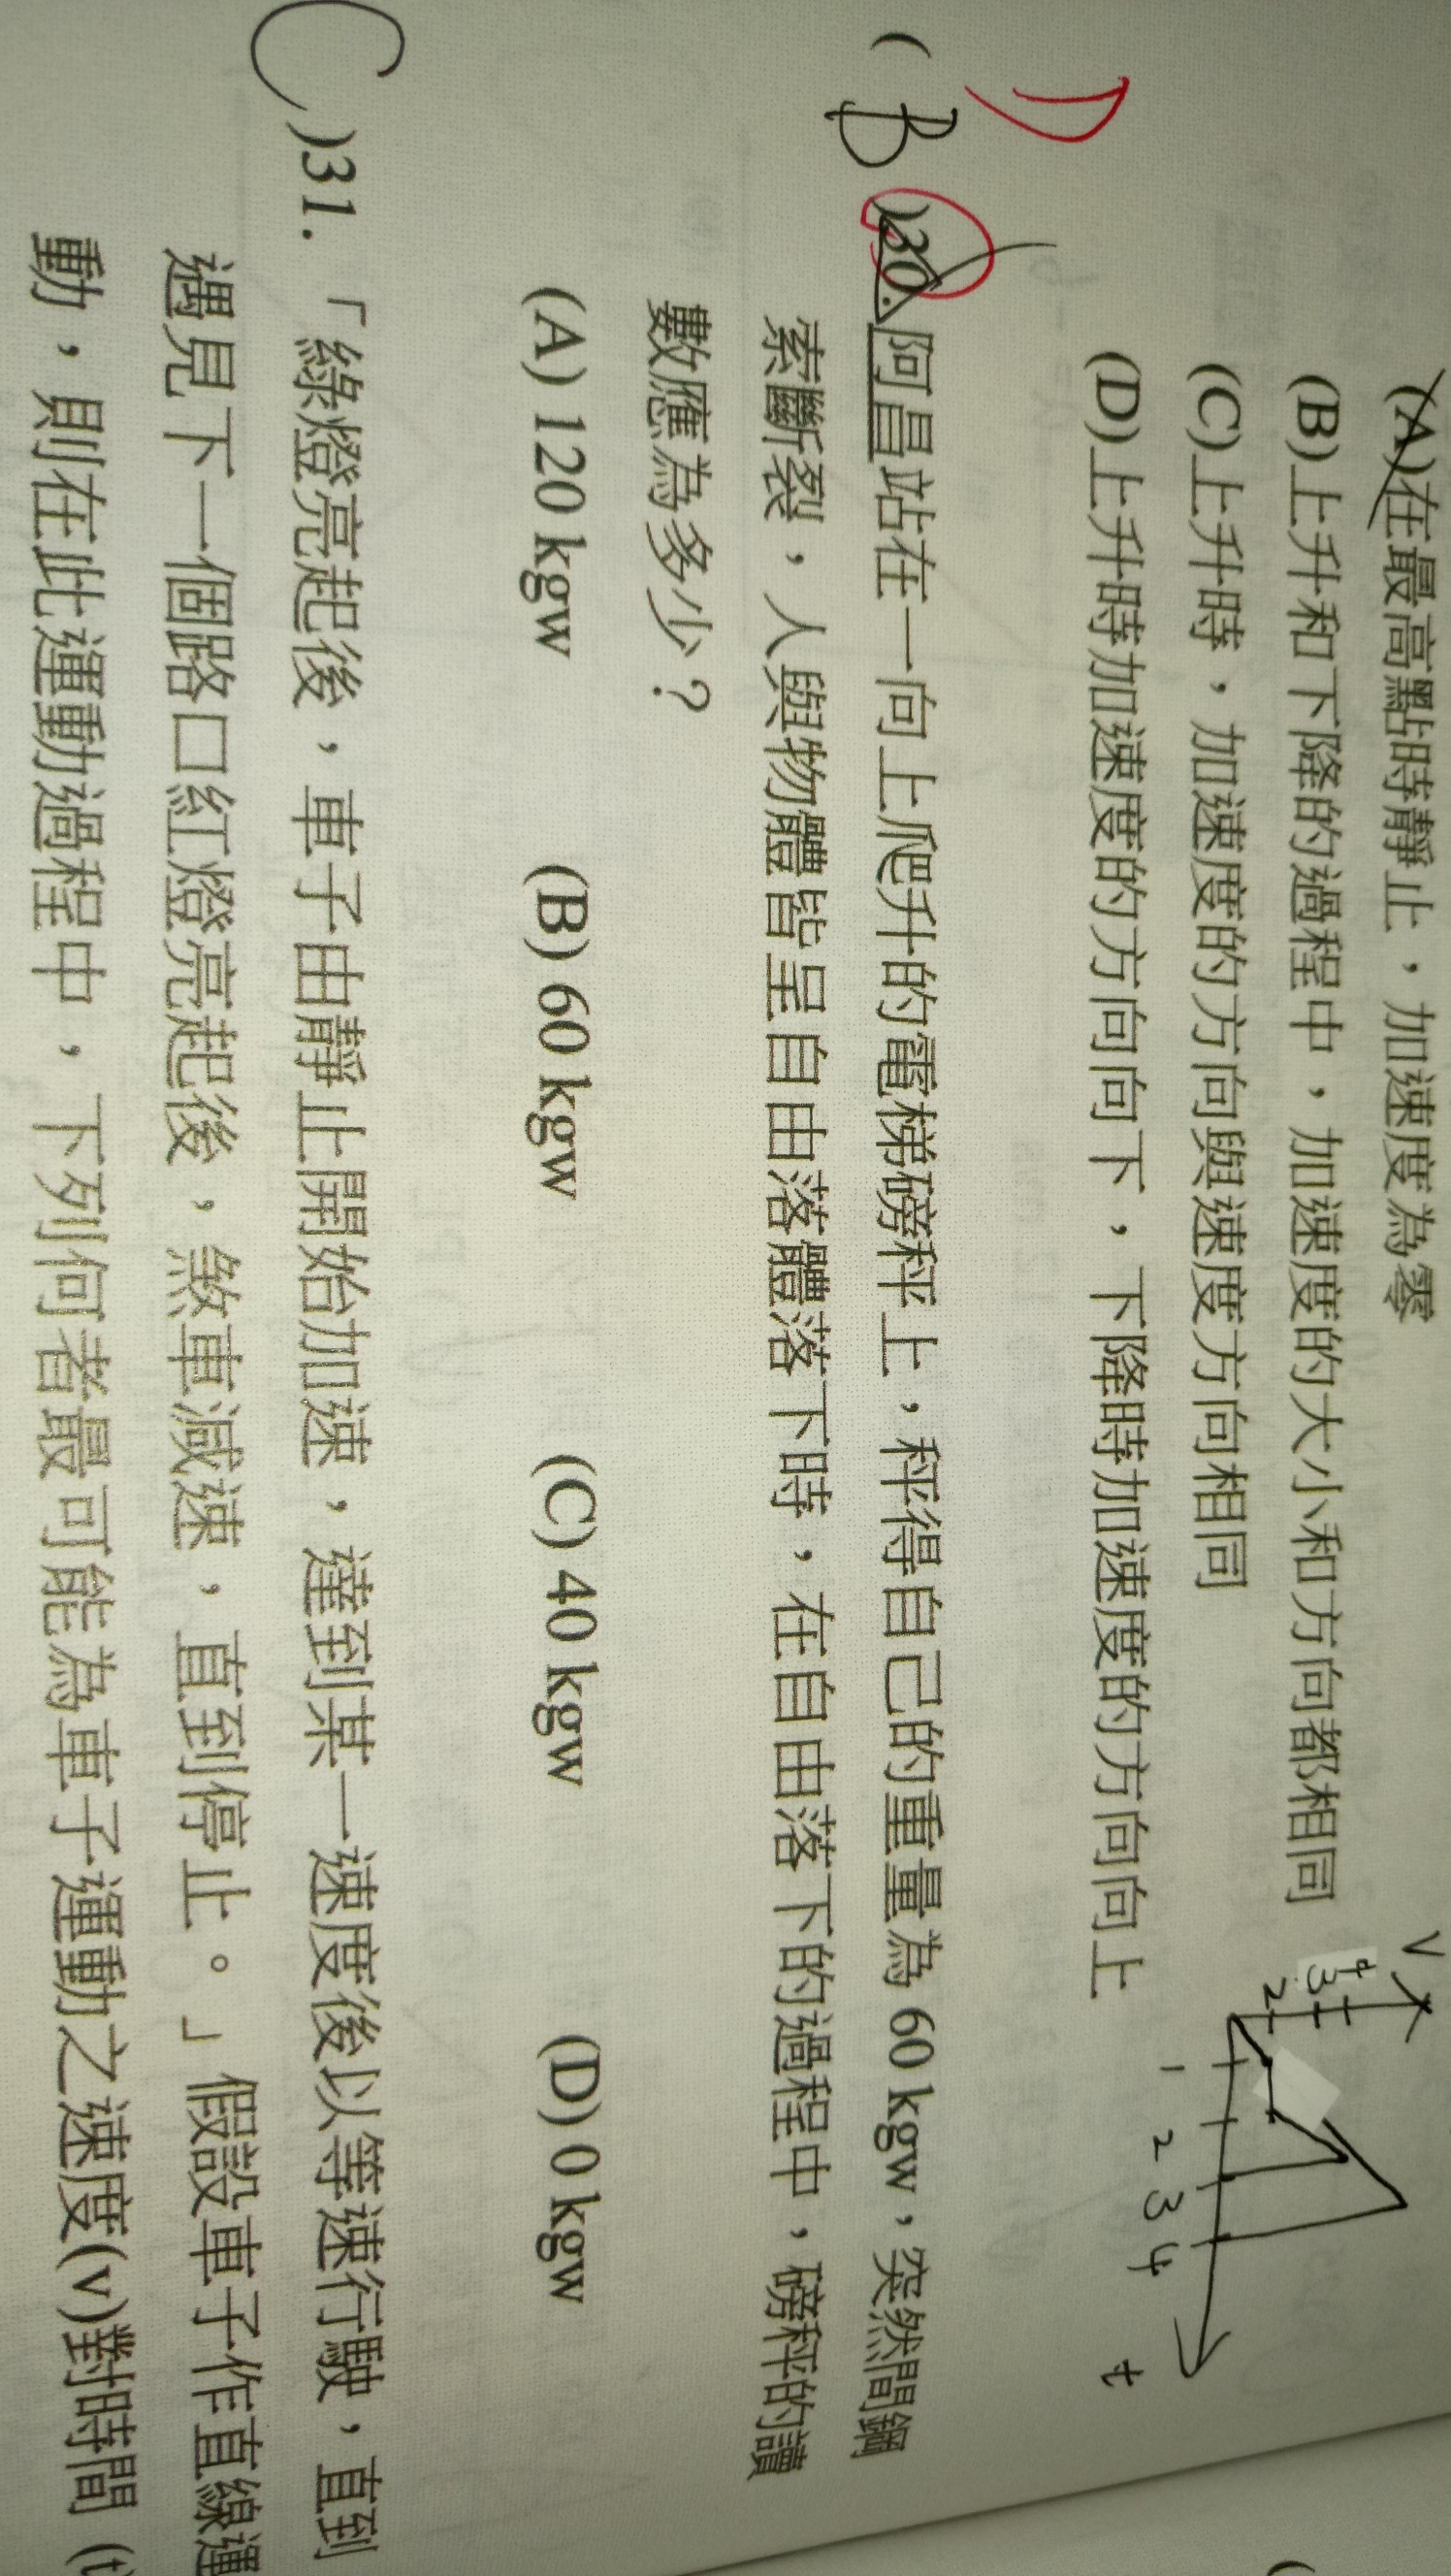 (A)在最高點時靜止，加速度為零
(B)上升和下降的過程中，加速度的大小和方向都相同
(C)上升時，加速度的方向與速度方向相同
(D)上升時加速度的方向向下，下降時加速度的方向向上
V
4
3
2
1 2 3 4 t
D
( B )30.阿昌站在一向上爬升的電梯磅秤上，秤得自己的重量為 60 kgw，突然間鋼
索斷裂，人與物體皆呈自由落體落下時，在自由落下的過程中，磅秤的讀
數應為多少？
(A) 120 kgw (B) 60 kgw (C) 40 kgw (D) 0 kgw
C )31.「綠燈亮起後，車子由靜止開始加速，達到某一速度後以等速行駛，直到
遇見下一個路口紅燈亮起後，煞車減速，直到停止。」假設車子作直線運
動，則在此運動過程中，下列何者最可能為車子運動之速度(v)對時間 (t